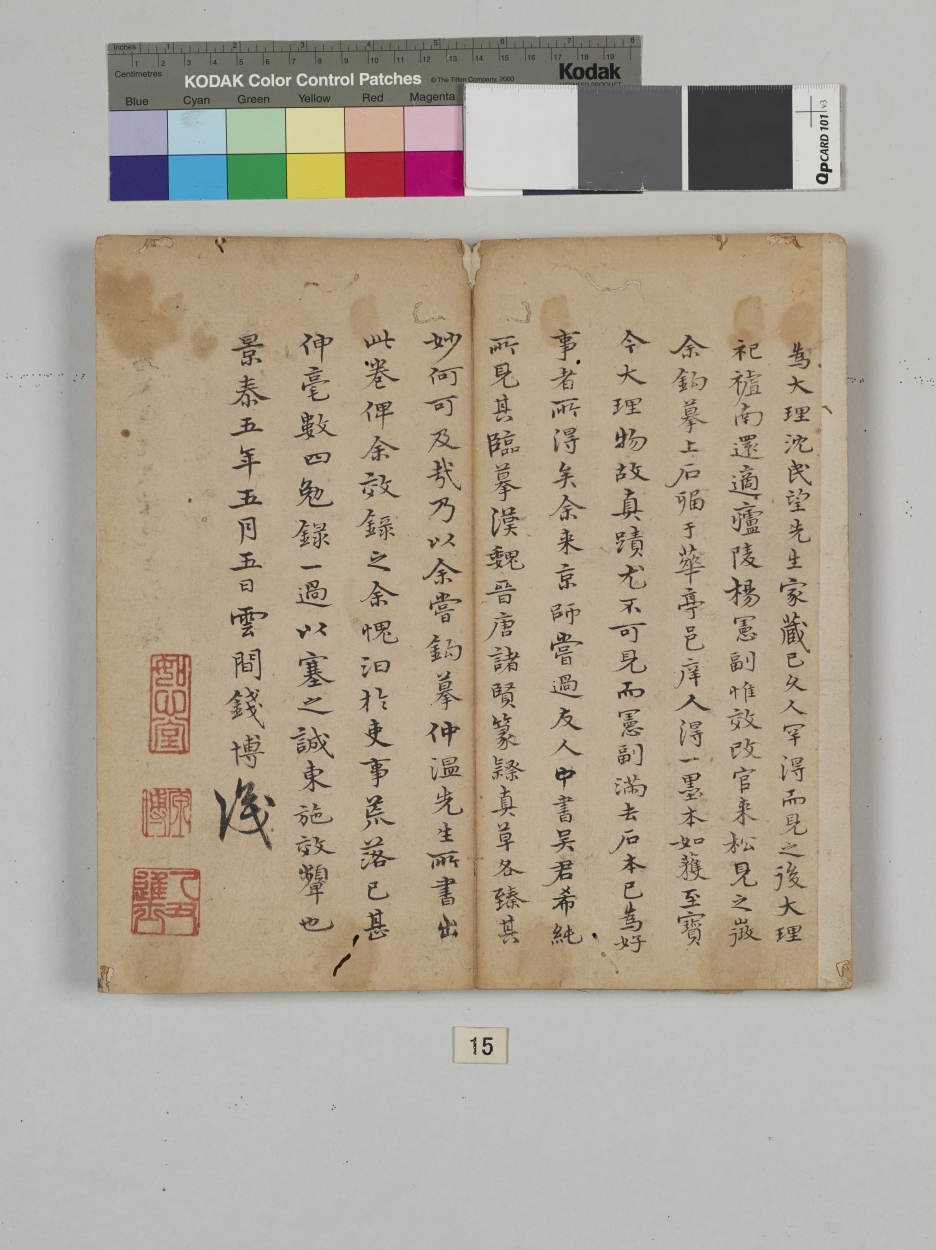 Inches 1 2 3 4 5 6 7 8
Centimetres 1 2 3 4 5 6 7 8 9 10 11 12 13 14 15 16 17 18 19
KODAK Color Control Patches © The Tiffen Company, 2000 Kodak
LICENSED PRODUCT
Blue Cyan Green Yellow Red Magenta
QPCARD 101 v3
為大理沈民望先生家藏已久人罕得而見之後大理
祀禮南還適廬陵楊憲副惟效改官來松見之
余鈎摹上石留于華亭邑庠人得一墨本如獲至寶
今大理物故真蹟尤不可見而憲副滿去石本已為好
事者所得矣余来京師嘗過友人中書吴君希純
所見其臨摹漢魏晉唐諸賢篆隸真草各臻其
妙何可及哉乃以余嘗鈎摹仲温先生所書出
此卷俾余效録之余愧汩於吏事荒落已甚
伸毫數四勉録一過以塞之誠東施效顰也
景泰五年五月五日雲間錢博識
原博
進士
15